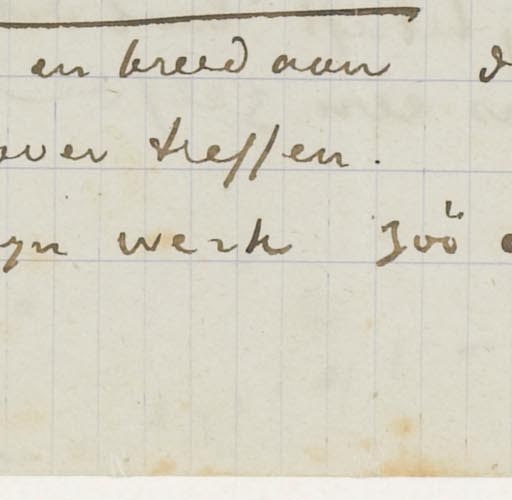 en breed aan d
over treffen.
yn werk zoö